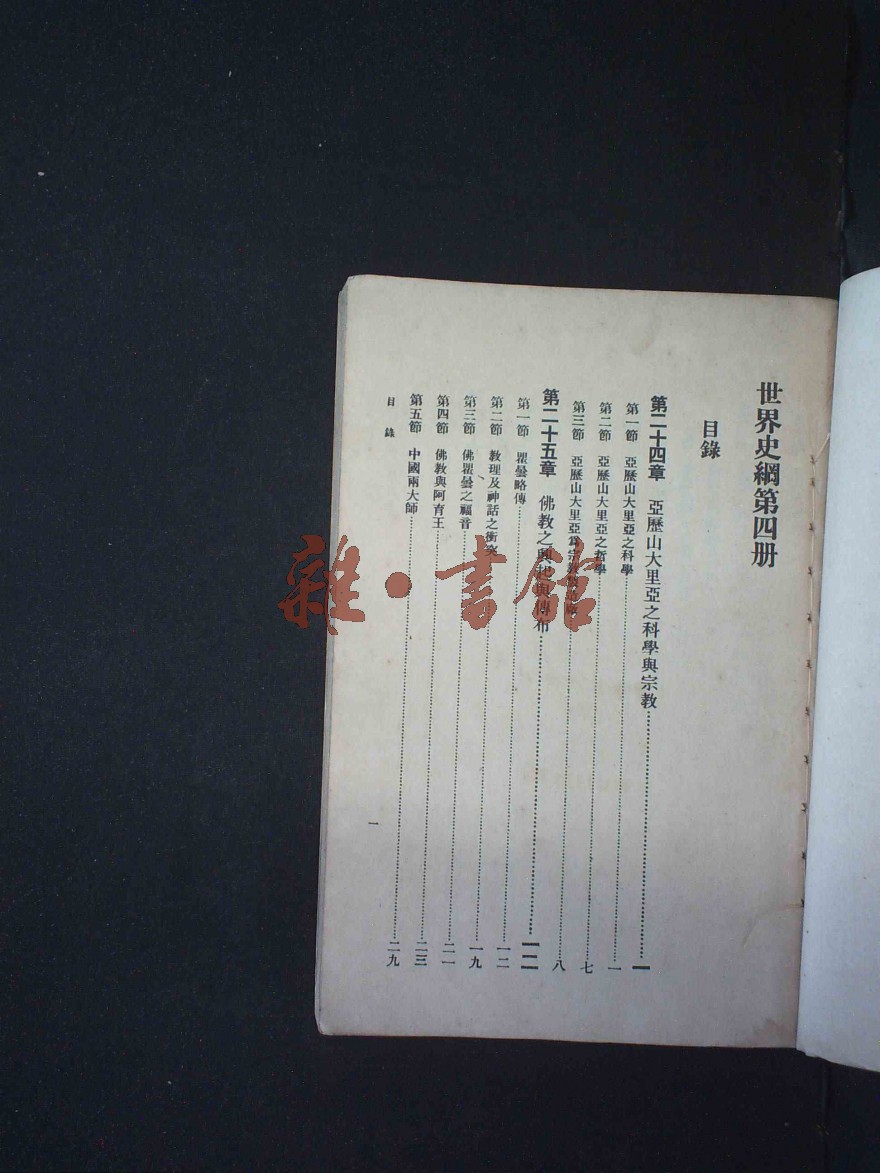 世界史綱第四册
目錄
第二十四章 亞歷山大里亞之科學與宗教 一
第一節 亞歷山大里亞之科學 一
第二節 亞歷山大里亞之哲學 七
第三節 亞歷山大里亞爲宗教 八
第二十五章 佛教之興起與傳布 一二
第一節 瞿曇略傳 一二
第二節 教理及神話之衝突 一九
第三節 佛瞿曇之福音 二一
第四節 佛教與阿育王 二三
第五節 中國兩大師 二九
目錄
一
雜·書館